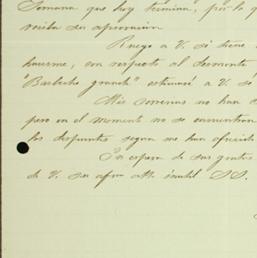 Semana que hoy termina, por lo q
reciba su aprovacion
Ruego a V. si tiene
hacerme, con respecto al desmonte
"Barbecho grande" estimaré a V. se
Mis correrias no han
pero en el momento no se encuentran
los dispuestos segun me han ofrecido
En espera de sus gratas
de V. su afmo atto SS.